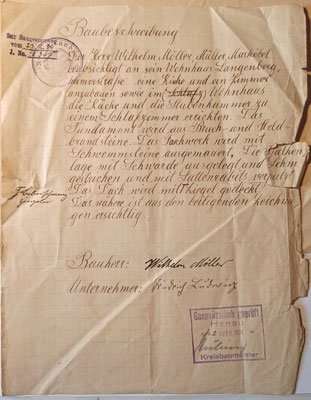 Baubeschreibung
Zur Baugenehmigung
vom
J. No.
Herr Wilhelm Möller, Müller, Marköbel
beabsichtigt an sein Wohnhaus Langenberg,
eine Küche und ein Zimmer
anzubauen sowie im Wohnhaus
die Küche und die Stubenkammer zu
einem Schlafzimmer errichten. Das
Fundament wird aus Bruch- und Feld-
brandsteine. Das Fachwerk wird mit
Schwemmsteine ausgemauert. Die Balken
lage mit Schwarde ausgelegt und Lehm
gestrichen und mit verputzt
Das Dach wird mit Ziegel gedeckt.
Das nähere ist aus den beiligenden Zeichnun
gen ersichtlich.
Bauherr: Wilhelm Möller
Unternehmer: Ludwig
Baupolizeilich geprüft
Hanau
Kreisbaumeister